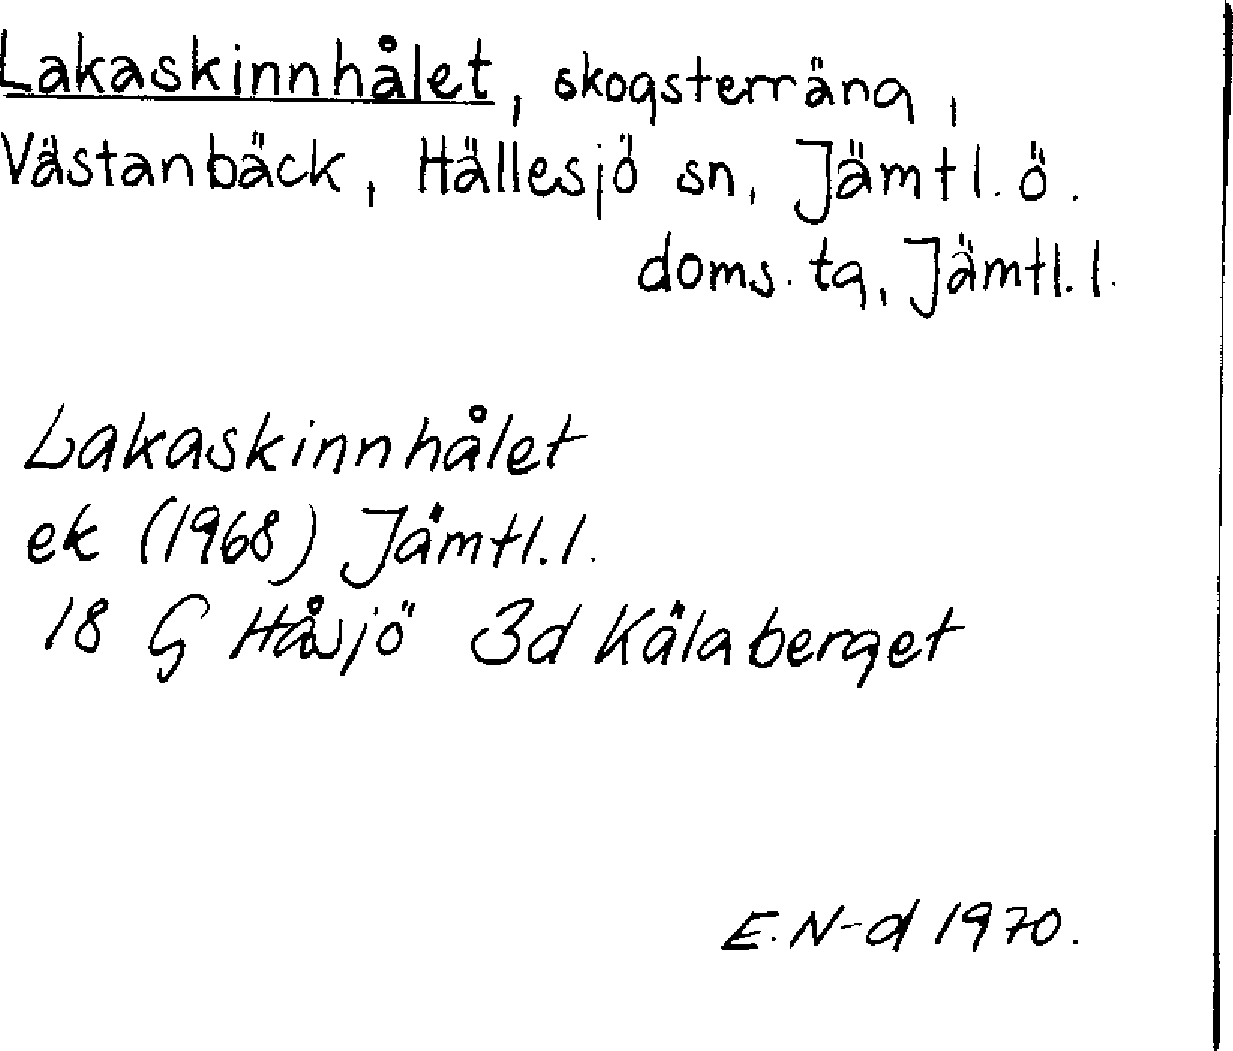 Lakaskinnhålet, skogsterräng,
Västanbäck, Hällesjö sn, Jämtl. ö.
doms. tg, Jämtl. l.
Lakaskinnhålet
ek (1968) Jämtl. l.
18 G Håsjö 3d Kälaberget
E. N-d 1970.